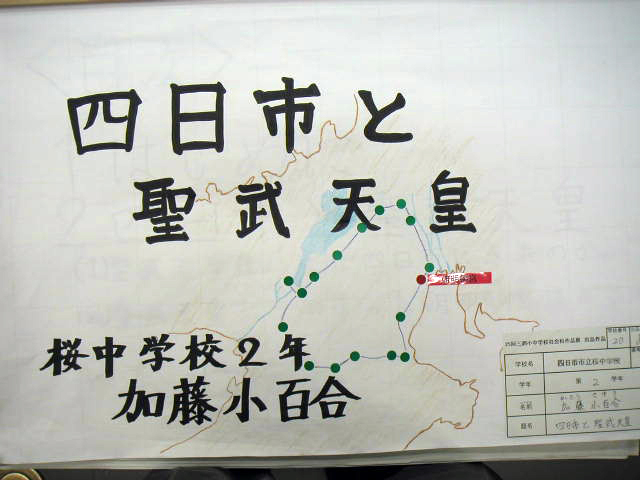 四日市と
聖武天皇
桜中学校2年
加藤小百合
学校番号
20
学校名 四日市市立桜中学校
学年 第 2 学年
名前 加藤 小百合
題名 四日市と聖武天皇